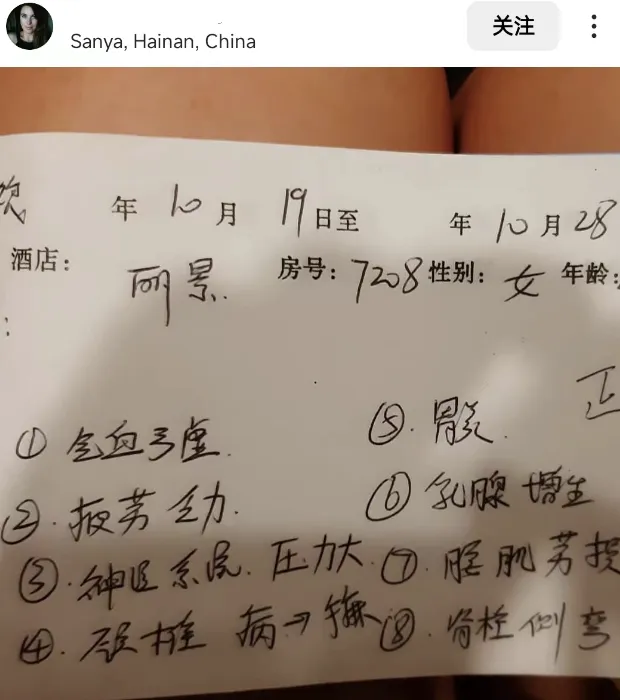 Sanya, Hainan, China
关注
年 10 月 19 日至 年 10 月 28
酒店: 丽景. 房号: 7208 性别: 女 年龄:
① 气血亏虚.
② 疲劳乏力.
③ 神经系统. 压力大
④ 颈椎病→
⑤ 胃炎.
⑥ 乳腺增生
⑦ 腰肌劳损
⑧ 脊柱侧弯